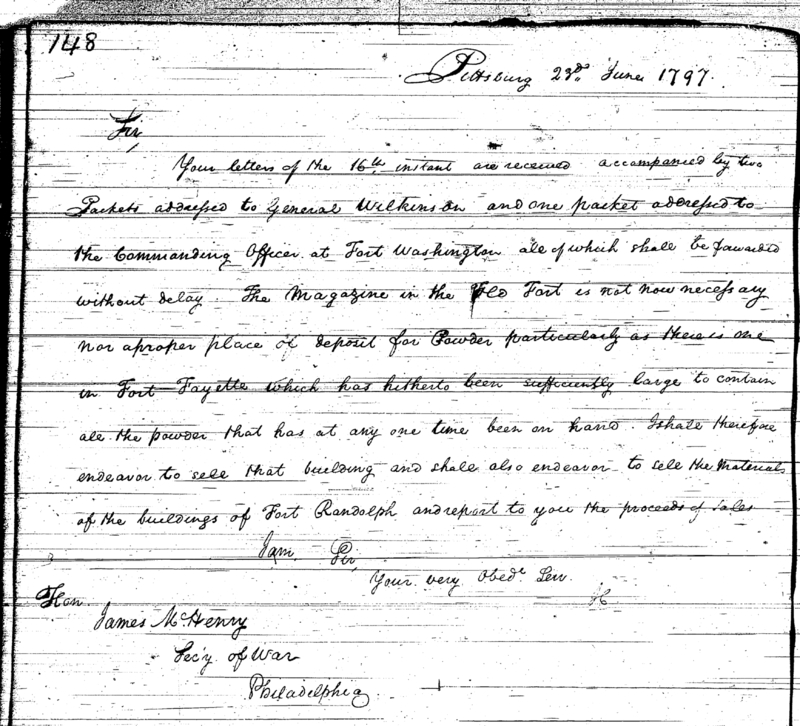 148
Pittsburg 23d. June 1797.
Sir,
Your letters of the 16th. instant are received accompanied by two
Packets addressed to General Wilkinson and one packet addressed to
the Commanding Officer at Fort Washington all of which shall be fowarded
without delay. The Magazine in the Old Fort is not now necessary
nor a proper place of deposit for Powder particularly as there is one
in Fort Fayette which has hitherto been sufficiently large to contain
all the powder that has at any one time been on hand. I shall therefore
endeavor to sell that building and shall also endeavor to sell the Materials
of the buildings of Fort Randolph and report to you the proceeds of sales
I am Sir,
Your very Obedt. Serv.
Hon.
James McHenry
Sec'y of War
Philadelphia